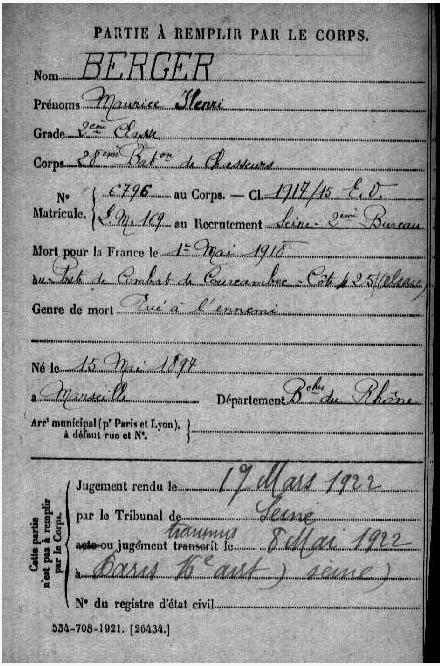 PARTIE À REMPLIR PAR LE CORPS.
Nom BERGER
Prénoms Maurice Henri
Grade 2ème Classe
Corps 28ème Baton de Chasseurs
N° Matricule. 6796 au Corps. — Cl. 1917/15 E.V.
E.M. 169 au Recrutement Seine - 2ème Bureau
Mort pour la France le 1er Mai 1918
au Poste de Combat de - Côte 425 (Alsace)
Genre de mort Tué à l'ennemi
Né le 15 Mai 1897
à Marseille Département Bches du Rhône
Arrt municipal (pr Paris et Lyon), à défaut rue et N°.
Cette partie n'est pas à remplir par le Corps.
Jugement rendu le 17 Mars 1922
par le Tribunal de Seine
acte ou jugement transcrit le transmis 8 Mai 1922
à Paris arrt (Seine)
N° du registre d'état civil
534-708-1921. [26434.]